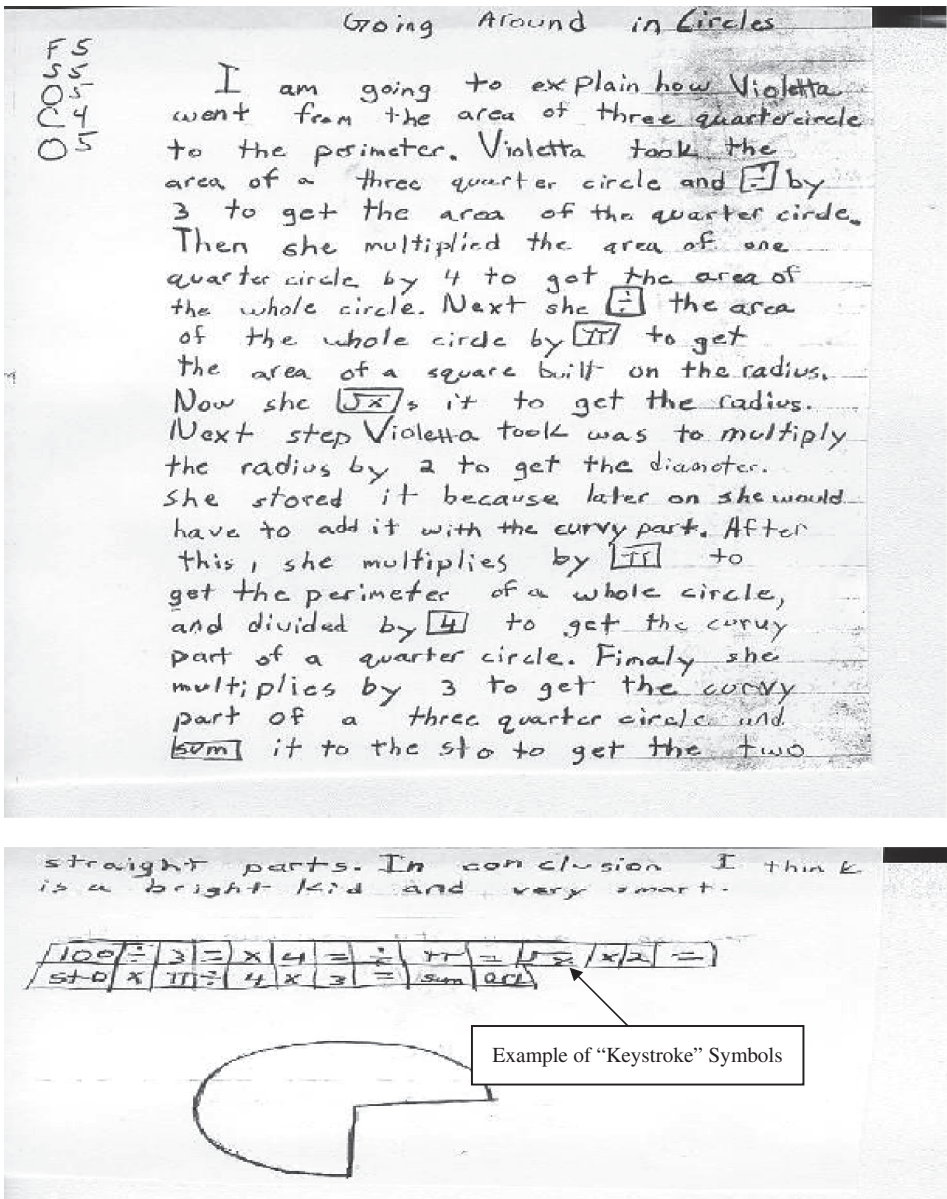 Going Around in Circles
F 5
S 5
O 5
C 4
O 5
I am going to explain how Violetta
went from the area of three quartercircle
to the perimeter. Violetta took the
area of a three quarter circle and ÷ by
3 to get the area of the quarter circle.
Then she multiplied the area of one
quarter circle by 4 to get the area of
the whole circle. Next she ÷ the area
of the whole circle by π to get
the area of a square built on the radius.
Now she √x s it to get the radius.
Next step Violetta took was to multiply
the radius by 2 to get the diameter.
She stored it because later on she would
have to add it with the curvy part. After
this, she multiplies by π to
get the perimeter of a whole circle,
and divided by 4 to get the curvy
part of a quarter circle. Fimaly she
multiplies by 3 to get the curvy
part of a three quarter circle and
sum it to the sto to get the two
straight parts. In conclusion I think
is a bright kid and very smart.
100 ÷ 3 = x 4 = ÷ π = √x x 2 =
sto x π ÷ 4 x 3 = sum
Example of “Keystroke” Symbols